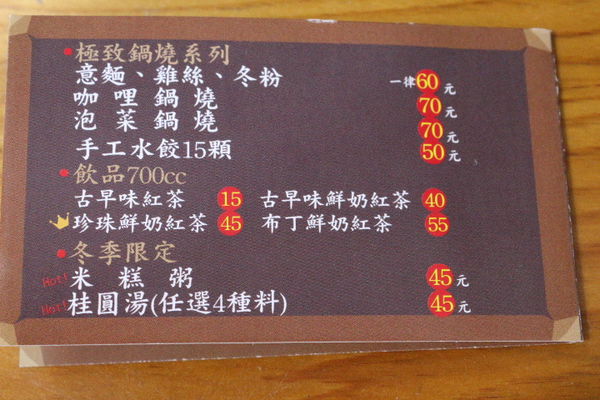 極致鍋燒系列
意麵、雞絲、冬粉 一律60元
咖哩鍋燒 70元
泡菜鍋燒 70元
手工水餃15顆 50元
飲品700cc
古早味紅茶 15 古早味鮮奶紅茶 40
珍珠鮮奶紅茶 45 布丁鮮奶紅茶 55
冬季限定
Hot! 米糕粥 45元
Hot! 桂圓湯(任選4種料) 45元